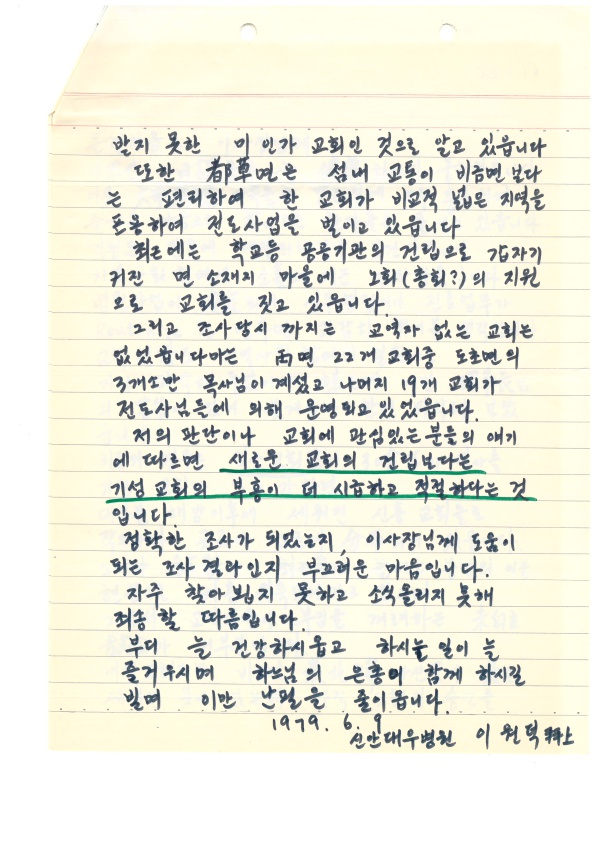 받지 못한 미인가 교회인 것으로 알고 있읍니다
또한 都草면은 섬내 교통이 비금면보다
는 편리하여 한 교회가 비교적 넓은 지역을
포용하여 전도사업을 벌이고 있읍니다
최근에는 학교등 공공기관의 건립으로 갑자기
커진 면소재지 마을에 노회(총회?)의 지원
으로 교회를 짓고 있읍니다.
그리고 조사당시 까지는 교역자 없는 교회는
없었읍니다마는 両면 22개 교회중 도초면의
3개소만 목사님이 계셨고 나머지 19개 교회가
전도사님들에 의해 운영되고 있었읍니다.
저의 판단이나 교회에 관심있는 분들의 얘기
에 따르면 새로운 교회의 건립보다는
기성 교회의 부흥이 더 시급하고 적절하다는 것
입니다.
정확한 조사가 되었는지, 이사장님께 도움이
되는 조사 결과인지 부끄러운 마음입니다.
자주 찾아 뵙지 못하고 소식올리지 못해
죄송할 따름입니다.
부디 늘 건강하시옵고 하시는 일이 늘
즐거우시며 하느님의 은총이 함께 하시길
빌며 이만 난필을 줄이옵니다.
1979. 6. 9
신안대우병원 이원덕 拜上